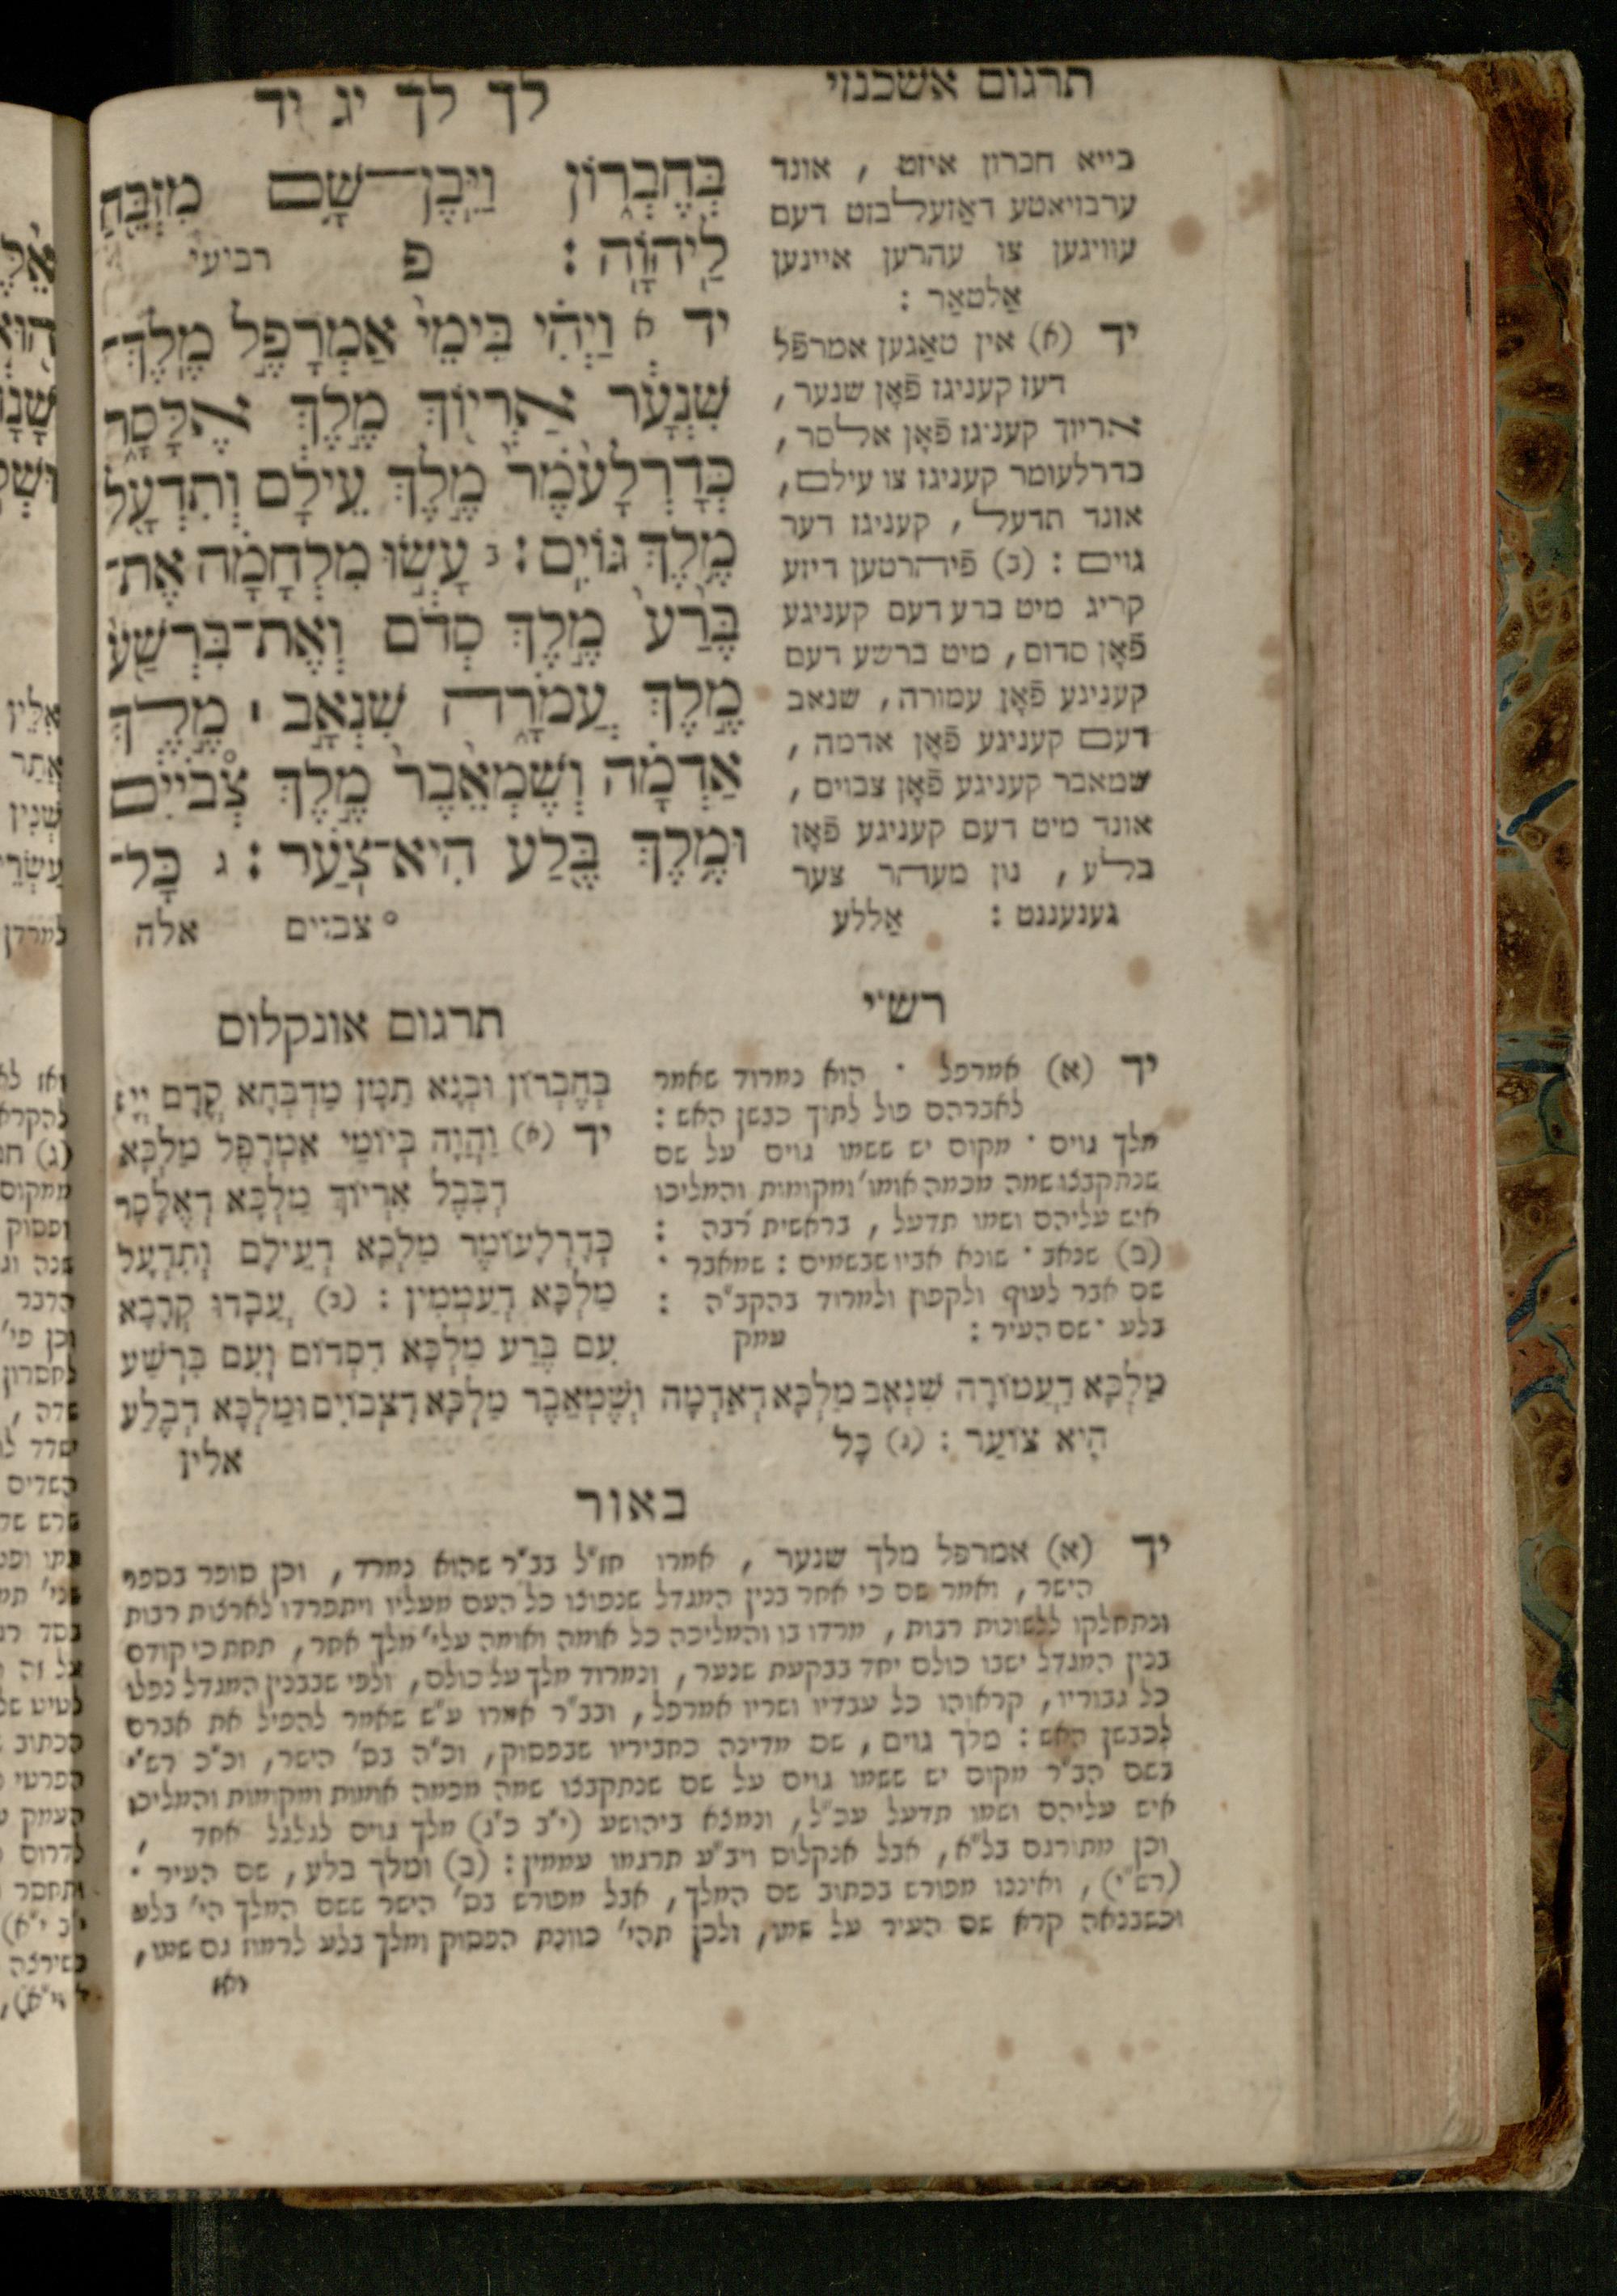 תרגום אשכנזי
לך לך יג יד
בְּחֶבְר֑וֹן וַיִּֽבֶן־שָׁ֥ם מִזְבֵּ֖חַ
לַֽיהוָֽה׃ פ רביעי
יד א וַיְהִ֗י בִּימֵי֙ אַמְרָפֶ֣ל מֶֽלֶךְ־
שִׁנְעָ֔ר אַרְי֖וֹךְ מֶ֣לֶךְ אֶלָּסָ֑ר
כְּדָרְלָעֹ֙מֶר֙ מֶ֣לֶךְ עֵילָ֔ם וְתִדְעָ֖ל
מֶ֥לֶךְ גּוֹיִֽם׃ ב עָשׂ֣וּ מִלְחָמָ֗ה אֶת־
בֶּ֙רַע֙ מֶ֣לֶךְ סְדֹ֔ם וְאֶת־בִּרְשַׁ֖ע
מֶ֣לֶךְ עֲמֹרָ֑ה שִׁנְאָ֣ב ׀ מֶ֣לֶךְ
אַדְמָ֗ה וְשֶׁמְאֵ֙בֶר֙ מֶ֣לֶךְ °צְבֹיִ֔ים
וּמֶ֥לֶךְ בֶּ֖לַע הִיא־צֹֽעַר׃ ג כָּל־
° צבוים אלה
בייא חברון איזט , אונד
ערבויאטע דאַזעלבזט דעם
עוויגען צו עהרען איינען
אַלטאַר :
יד (א) אין טאַגען אמרפֿל
דעז קעניגז פֿאָן שנער ,
אריוך קעניגז פֿאָן אלסר ,
כדרלעומר קעניגז צו עילם ,
אונד תדעל , קעניגז דער
גוים : (ב) פֿיהרטען דיזע
קריג מיט ברע דעם קעניגע
פֿאָן סדום , מיט ברשע דעם
קעניגע פֿאָן עמורה , שנאב
דעם קעניגע פֿאָן אדמה ,
שמאבר קעניגע פֿאָן צבוים ,
אונד מיט דעם קעניגע פֿאָן
בלע , נון מעהר צער
גענעננט : אַללע
רש״י
יד (א) אמרפל · הוא נמרוד שאמר
לאברהם פול לתוך כבשן האש :
מלך גוים · מקום יש ששמו גוים על שם
שנתקבצו שמה מכמה אומו' ומקומות והמליכו
איש עליהם ושמו תדעל , בראשית רבה :
(ב) שנאב · שונא אביו שבשמים : שמאבר ·
שם אבר לעוף ולקפוץ ולמרוד בהקב״ה :
בלע · שם העיר : עמק
תרגום אונקלוס
בְּחֶבְרוֹן וּבְנָא תַמָן מַדְבְּחָא קֳדָם יְיָ :
יד (א) וַהֲוָה בְּיוֹמֵי אַמְרָפֶל מַלְכָּא
דְבָבֶל אַרְיוֹךְ מַלְכָּא דְאֶלָסָר
כְּדָרְלָעוֹמֶר מַלְכָּא דְעֵילָם וְתִדְעָל
מַלְכָּא דְעַמְמִין : (ב) עֲבָדוּ קְרָבָא
עִם בֶּרַע מַלְכָּא דִסְדוֹם וְעִם בִּרְשַׁע
מַלְכָּא דַעֲמוֹרָה שִׁנְאָב מַלְכָּא דְאַדְמָה וְשֶׁמְאֵבֶר מַלְכָּא דִצְבוֹיִם וּמַלְכָּא דְבֶלַע
הִיא צוֹעַר : (ג) כָּל אלין
באור
יד (א) אמרפל מלך שנער , אמרו חז״ל בב״ר שהוא נמרד , וכן סופר בספר
הישר , ואמר שם כי אחר בנין המגדל שנפוצו כל העם מעליו ויתפרדו לארצות רבות
ונתחלקו ללשונות רבות , מרדו בו והמליכה כל אומה ואומה עלי' מלך אחר , תחת כי קודם
בנין המגדל ישבו כולם יחד בבקעת שנער , ונמרוד מלך על כולם , ולפי שבבנין המגדל נפלו
כל גבוריו , קראוהו כל עבדיו ושריו אמרפל , ובב״ר אמרו ע״ש שאמר להפיל את אברם
לכבשן האש : מלך גוים , שם מדינה כחביריו שבפסוק , וכ״ה בס' הישר , וכ״כ רש״י
בשם הב״ר מקום יש ששמו גוים על שם שנתקבצו שמה מכמה אומות ומקומות והמליכו
איש עליהם ושמו תדעל עכ״ל , ונמצא ביהושע (י״ב כ״ג) מלך גוים לגלגל אחד ,
וכן מתורגם בל״א , אבל אנקלוס ויב״ע תרגמו עממין : (ב) ומלך בלע , שם העיר ·
(רש״י) , ואיננו מפורש בכתוב שם המלך , אבל מפורש בס' הישר ששם המלך הי' בלע
וכשבנאה קרא שם העיר על שמו , ולכן תהי' כוונת הפסוק ומלך בלע לרמוז גם שמו ,